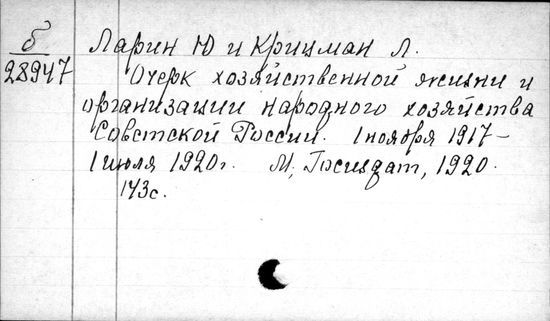 б
28947
Ларин Ю и Крицман Л.
Очерк хозяйственной жизни и
организации народного хозяйства
Советской России. 1 ноября 1917-
1 июля 1920 г. М, Госиздат, 1920.
143 с.